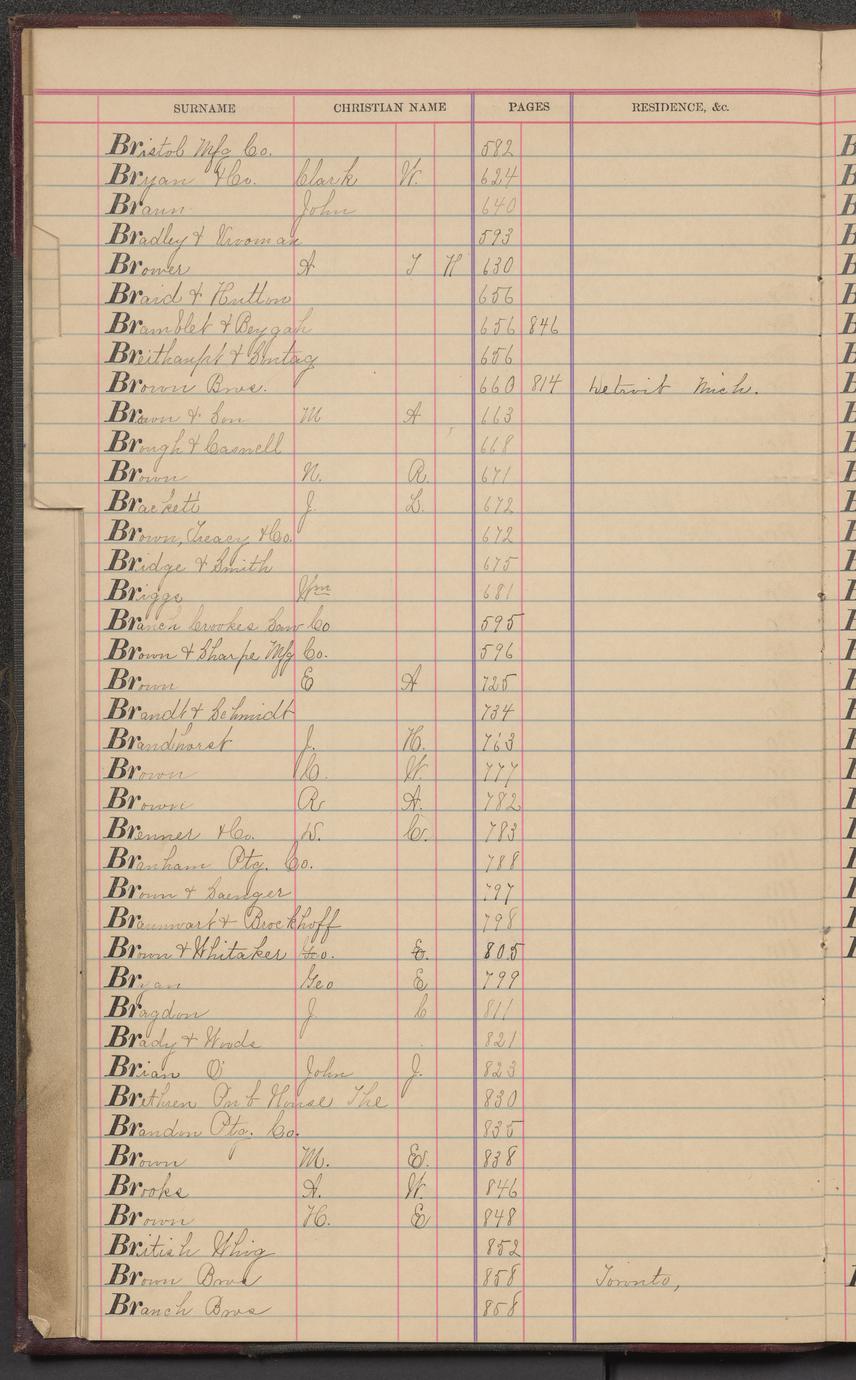 SURNAME CHRISTIAN NAME PAGES RESIDENCE, &c.
Bristol Mfg Co. 582
Bryan & Co. Clark W. 624
Braun John 640
Bradley & Vrooman 593
Brower A T H 630
Braid & Hutton 656
Bramblet & Beygah 656 846
Breithaupt & Sontag 656
Brown Bros. 660 814 Detroit Mich.
Brown & Son M A 663
Brough & Casnell 668
Brown N. R. 671
Brackett J. L. 672
Brown, Treacy & Co. 672
Bridge & Smith 675
Briggs Wm 681
Branch Crookes Saw Co 595
Brown & Sharpe Mfg Co. 596
Brown E A 725
Brandt & Schmidt 734
Brandhorst J. H. 763
Brown C. W. 777
Brown R A. 782
Brenner & Co. D. C. 783
Branham Ptg. Co. 788
Brown & Saenger 797
Braunwart & Brockhoff 798
Brown & Whitaker Geo. E. 805
Bryan Geo E 799
Bragdon J C 811
Brady & Woods 821
Brian O' John J. 823
Brethren Pub House The 830
Brandon Ptg. Co. 835
Brown M. E. 838
Brooks A. W. 846
Brown H. E 848
British Whig 852
Brown Bros 858 Toronto,
Branch Bros 858